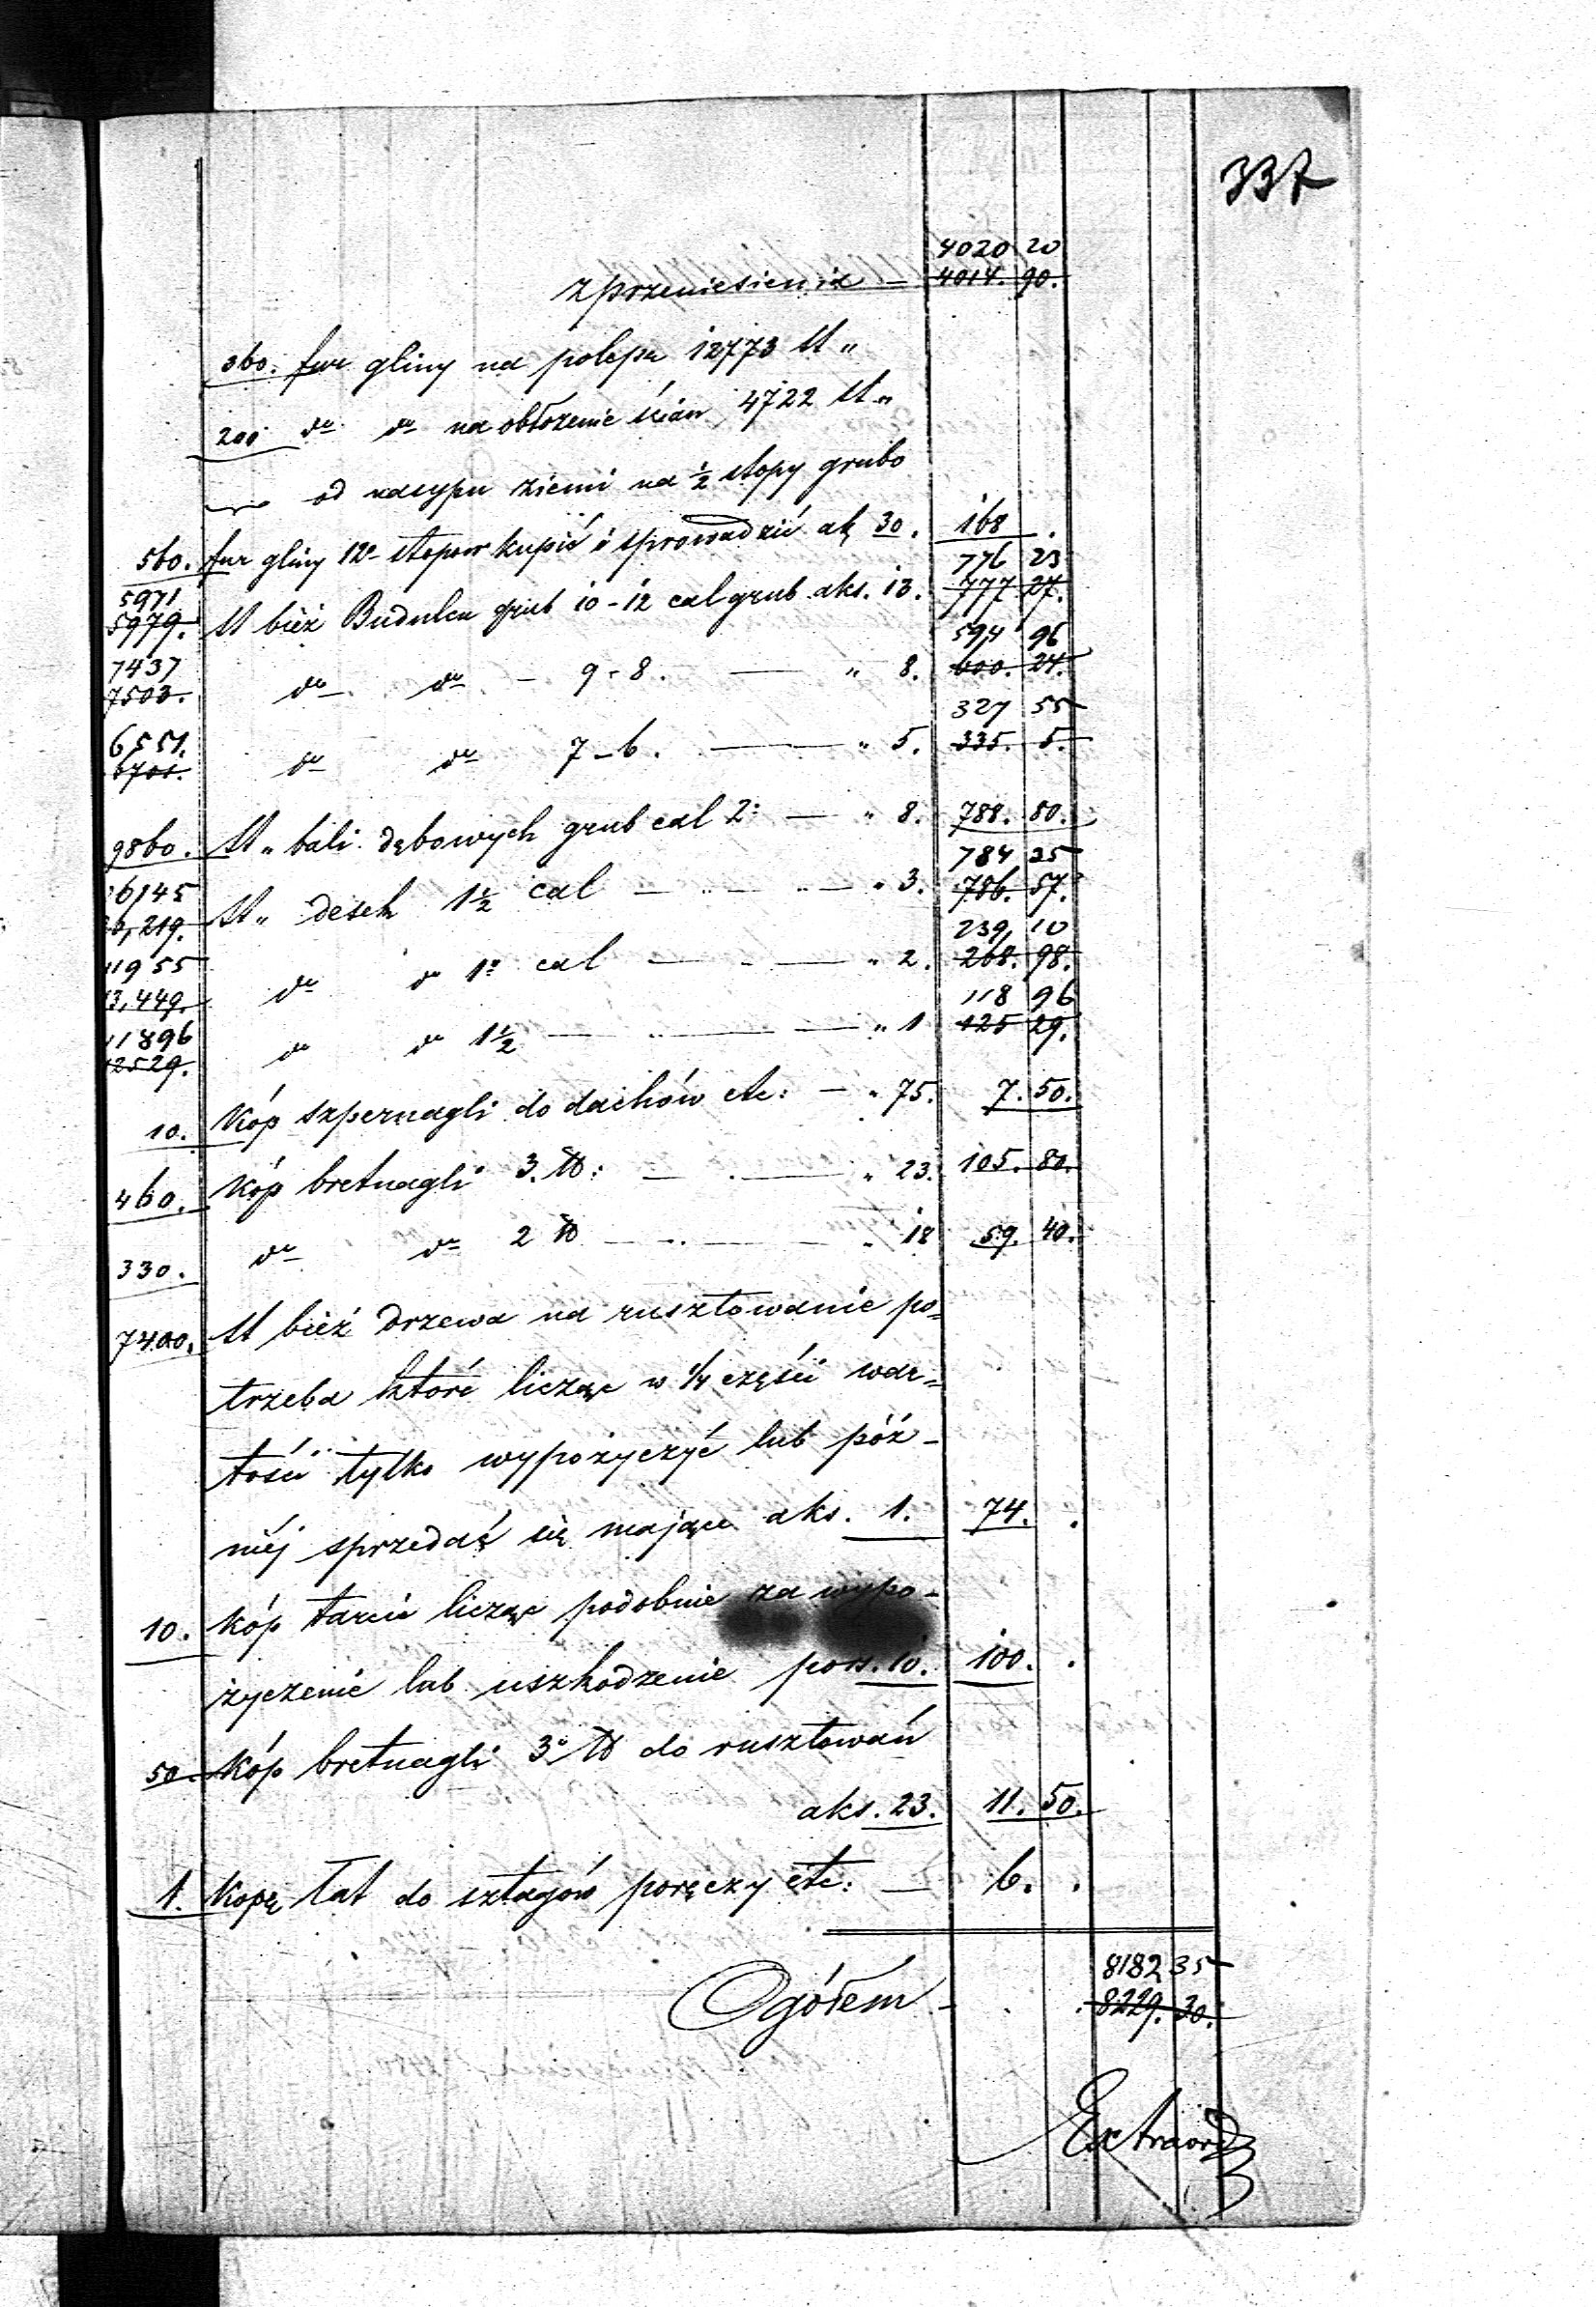 337
4020 20
z przeniesienia — 4014. 90.
360. fur gliny na polepę 12773 St „
200 do do na obłożenie ścian 4722 St „
od nasypu ziemi na ½ stopy grubo
560. fur gliny 12o stopow kupić i sprowadzić ak 30. 168 .
5971 776 23
5979. St bież Budulcu grub 10-12 cal grub aks. 13. 777 27.
7437 594 96
7503. do do - 9-8. — „ 8. 600. 24.
6551. 327 55
6701. do do 7-6. — „ 5. 335. 5.
9860. St „ bali dębowych grub cal 2: — „ 8. 788. 80.
26145 784 35
26,219. St „ desek 1½ cal — „ — „ 3. 786. 57.
11955 239, 10
13,449. do do 1o cal — „ 2. 268. 98.
11896 118 96
12529. do do 1½ — „ 1 125 29.
10. Kóp szpernagli do dachów etc: — „ 75. 7. 50.
460. Kóp bretnagli 3. ℔: — „ 23. 105. 80.
330. do do 2 ℔ — „ 18 59. 40.
7400. St bież drzewa na rusztowanie po=
trzeba które licząc w ¼ części war=
tości tylko wypożyczyć lub póź-
niéj sprzedać się mające aks. 1. 74. .
10. Kóp tarcic licząc podobnie za wypo-
życzenie lub uszkodzenie pors. 10. 100. .
50. Kóp bretnagli 3o ℔ do rusztowań
aks. 23. 11. 50.
1. Kopę Łat do sztagów poręczy etc: — 6. .
8182 35
Ogółem - . . 8229. 30.
Extraord